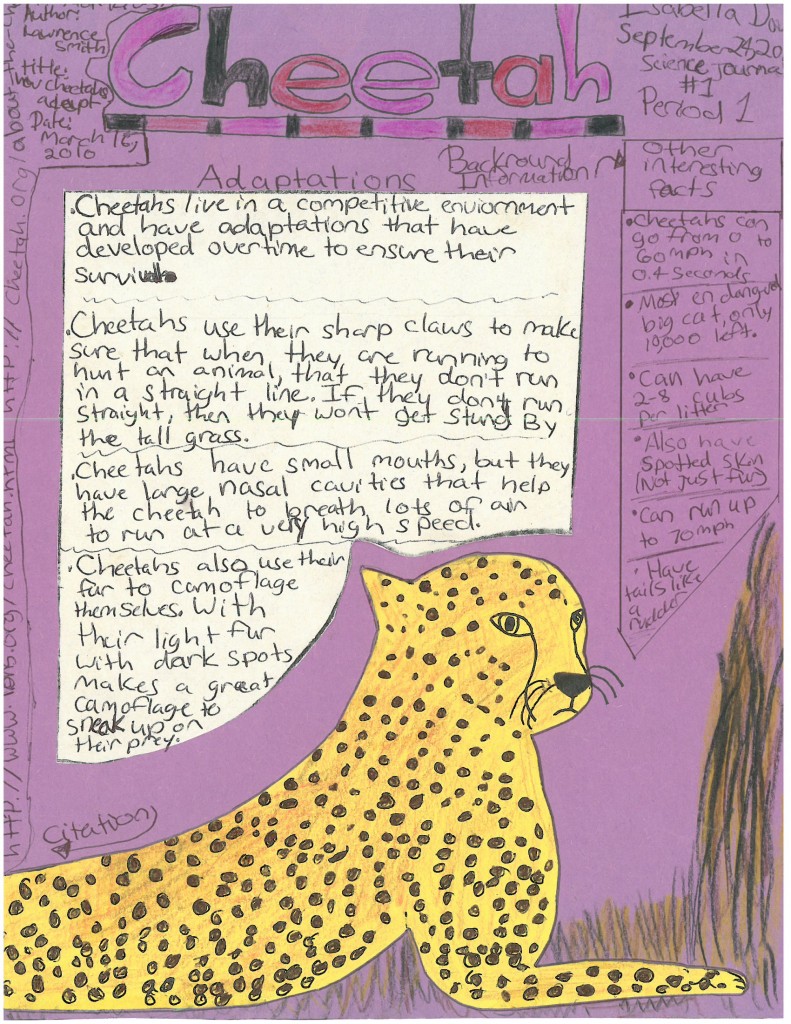 Author:
Lawrence
Smith
title:
how cheetahs
adapt
Date:
March 16,
2010
Cheetah
Isabella
September 24, 20
Science Journal
#1
Period 1
Adaptations
Backround
Information
• Cheetahs live in a competitive enviornment
and have adaptations that have
developed overtime to ensure their
survival
• Cheetahs use their sharp claws to make
sure that when they are running to
hunt an animal, that they don't run
in a straight line. If they don't run
straight, then they wont get By
the tall grass.
• Cheetahs have small mouths, but they
have large nasal cavities that help
the cheetah to breath lots of air
to run at a very high speed.
• Cheetahs also use their
fur to camoflage
themselves. With
their light fur
with dark spots
makes a great
camoflage to
sneak up on
their prey.
Other
interesting
facts
• Cheetahs can
go from 0 to
60mph in
0.4 seconds
• Most endangered
big cat, only
10,000 left.
• Can have
2-8 cubs
per litter
• Also have
spotted skin
(Not just fur)
• Can run up
to 70mph
• Have
tails like
a
rudder
Citation